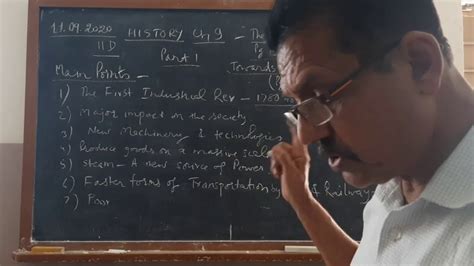 11.09.2020 HISTORY Ch 9 - The
11 D Part 1
Towards
Main Points -
1) The First Industrial Rev - 1780
2) Major impact on the society
3) New Machinery & technologies
4) Produce goods on a massive scale
5) Steam - A new source of Power
6) Faster forms of Transportation by Railway
7)